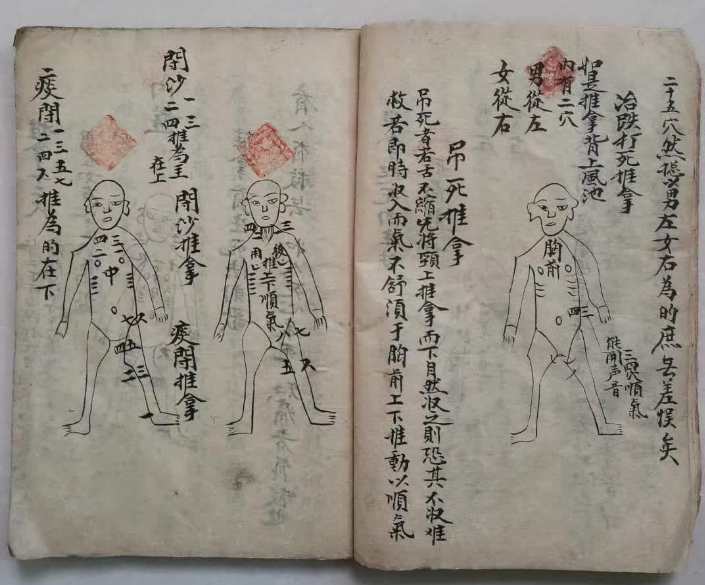 二十五穴然總以男左女右為的庶無差悮矣
治跌打死推拿
如是推拿背上風池
內有二穴
男從左
女從右
胸前
三四
三門順氣
能開声音
吊死推拿
吊死者若舌不縮先将頸上推拿而下自然収之則恐其不収难
救若即時収入而氣不舒須于胸前上下推動以順氣
閉沙一三
二四推為主
在上
閉沙推拿
痰閉推拿
後推上下順氣
用
三
四
七
八
五
六
痰閉一三五七
二四六推為的在下
三
四
二
中
七
六
五
四
三
二
一